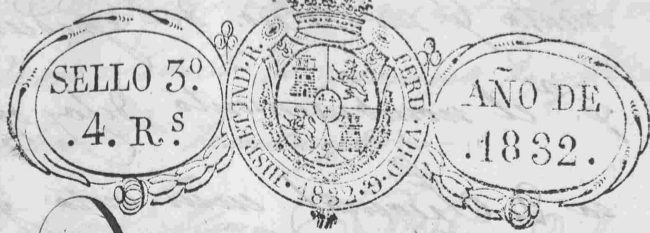 SELLO 3.º
.4. R.ˢ
HISP. ET IND. R. FERD. VII. D. G. 1832
AÑO DE
.1832.